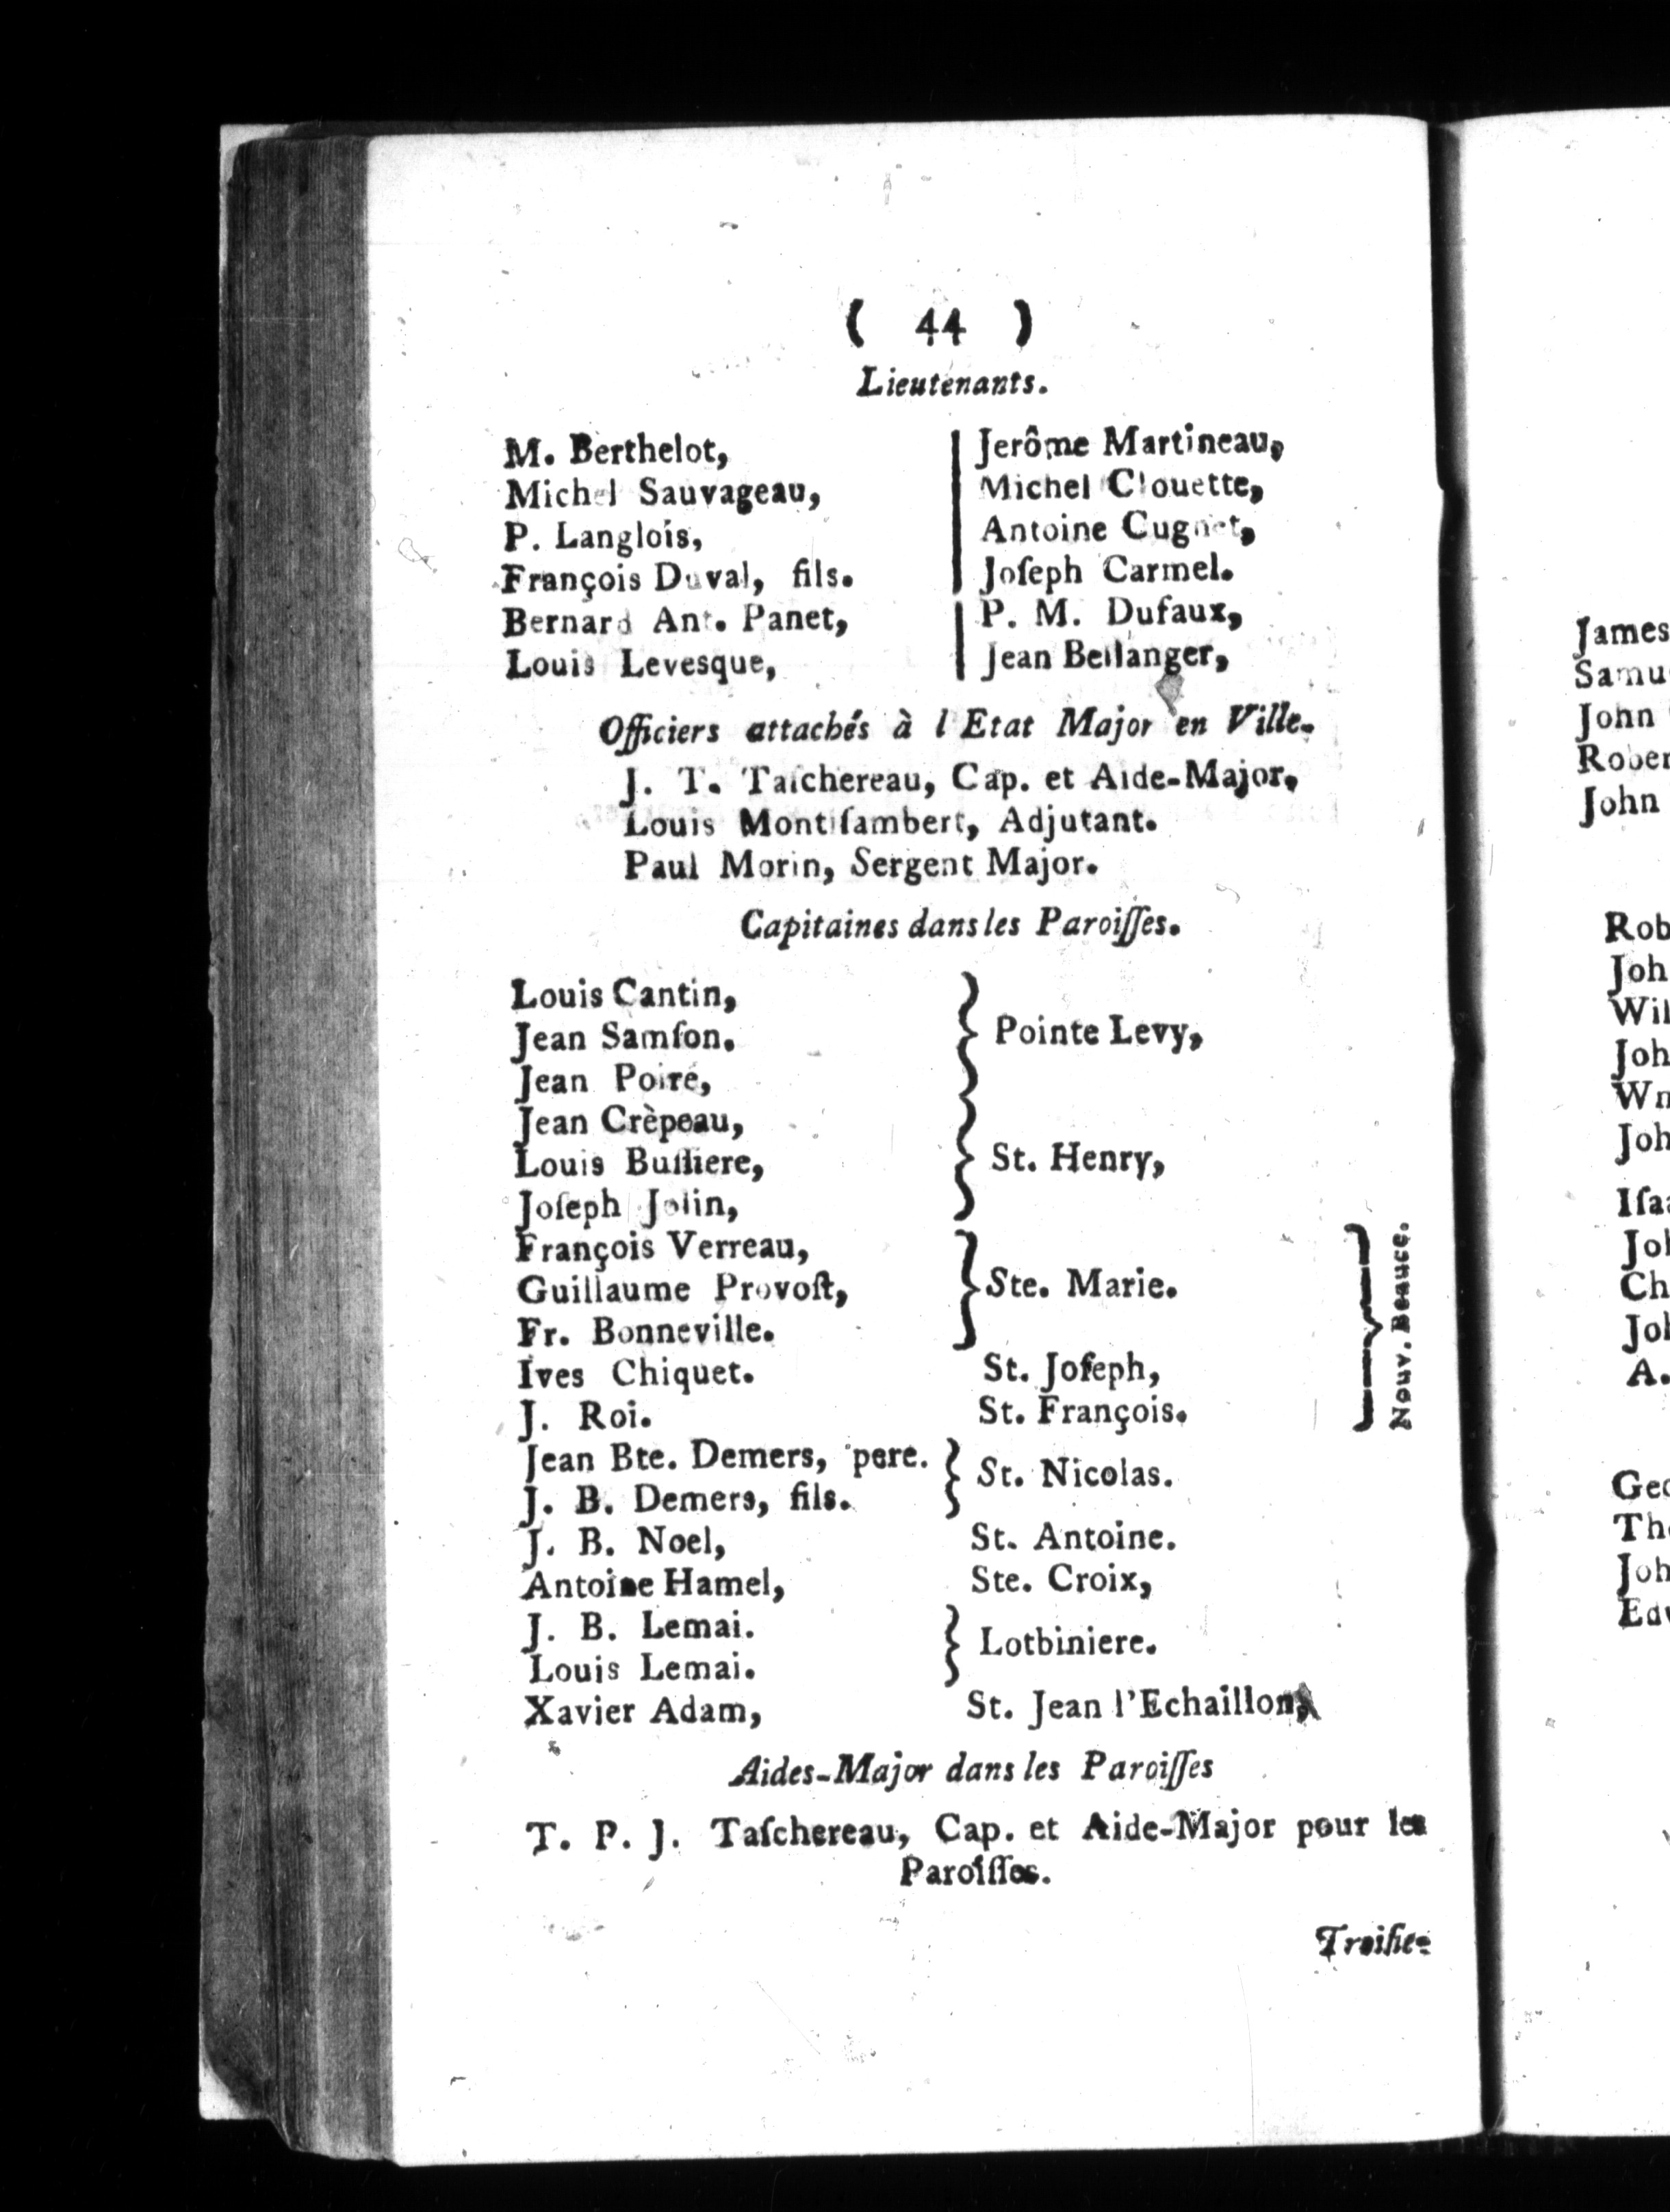 ( 44 )
Lieutenants.
M. Berthelot,
Michel Sauvageau,
P. Langlois,
François Duval, fils.
Bernard Ant. Panet,
Louis Levesque,
Jerôme Martineau,
Michel Clouette,
Antoine Cugnet,
Joſeph Carmel.
P. M. Dufaux,
Jean Bellanger,
Officiers attachés à l Etat Major en Ville.
J. T. Taſchereau, Cap. et Aide-Major,
Louis Montiſambert, Adjutant.
Paul Morin, Sergent Major.
Capitaines dans les Paroiſſes.
Louis Cantin,
Jean Samſon.
Jean Poiré,
Pointe Levy,
Jean Crèpeau,
Louis Buſſiere,
Joſeph Jolin,
St. Henry,
François Verreau,
Guillaume Provoſt,
Fr. Bonneville.
Ste. Marie.
Ives Chiquet. St. Joſeph,
J. Roi. St. François.
Nouv. Beauce.
Jean Bte. Demers, pere.
J. B. Demers, fils.
St. Nicolas.
J. B. Noel, St. Antoine.
Antoine Hamel, Ste. Croix,
J. B. Lemai.
Louis Lemai.
Lotbiniere.
Xavier Adam, St. Jean l'Echaillon,
Aides-Major dans les Paroiſſes
T. P. J. Taſchereau, Cap. et Aide-Major pour les
Paroiſſes.
Troiſie-
James
John
John
Wil
A.